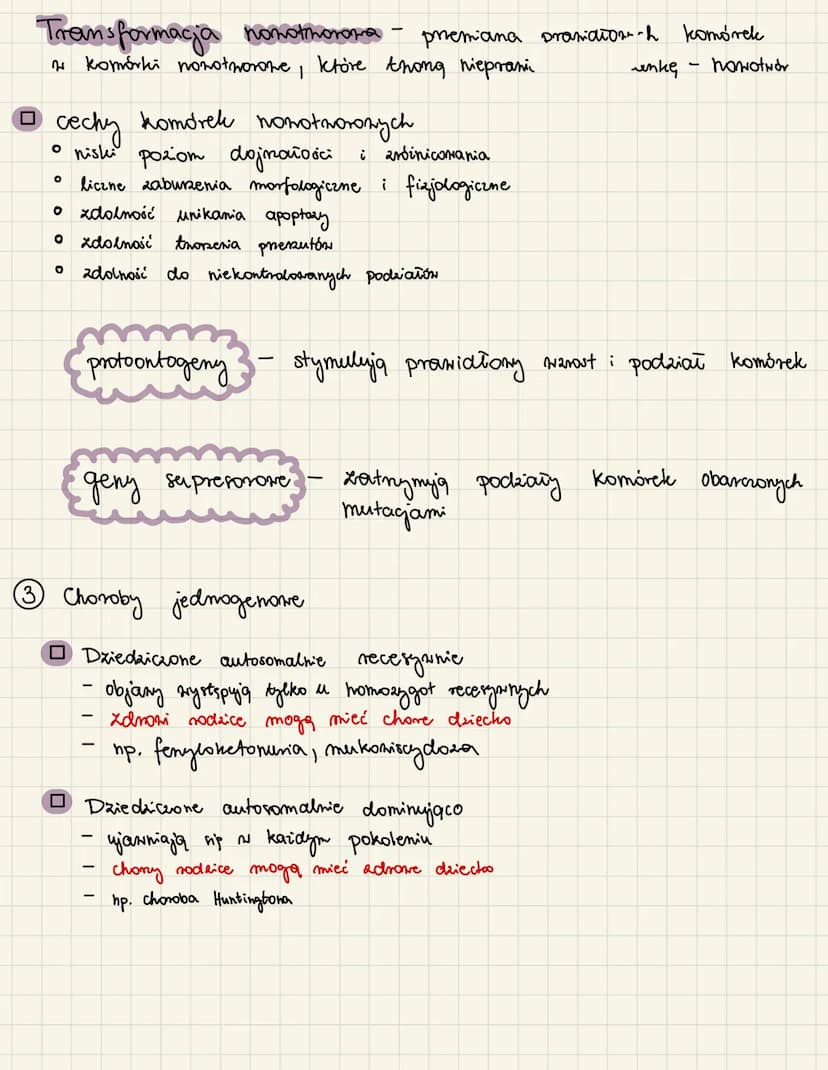 Transformacja nowotworowa – przemiana komórek
w komórki nowotworowe, które tworzą – nowotwór
cechy komórek nowotworowych
niski poziom dojrzałości i zróżnicowania
liczne zaburzenia morfologiczne i fizjologiczne
zdolność unikania apoptozy
zdolność tworzenia przerzutów
zdolność do niekontrolowanych podziałów
protoontogeny – stymulują prawidłowy wzrost i podział komórek
geny supresorowe – zatrzymują podziały komórek obarczonych
mutacjami
3 Choroby jednogenowe
Dziedziczone autosomalnie recesywnie
- objawy występują tylko u homozygot recesywnych
- zdrowi rodzice mogą mieć chore dziecko
- np. fenyloketonuria, mukowiscydoza
Dziedziczone autosomalnie dominująco
- ujawniają się w każdym pokoleniu
- chorzy rodzice mogą mieć zdrowe dziecko
- np. choroba Huntingtona